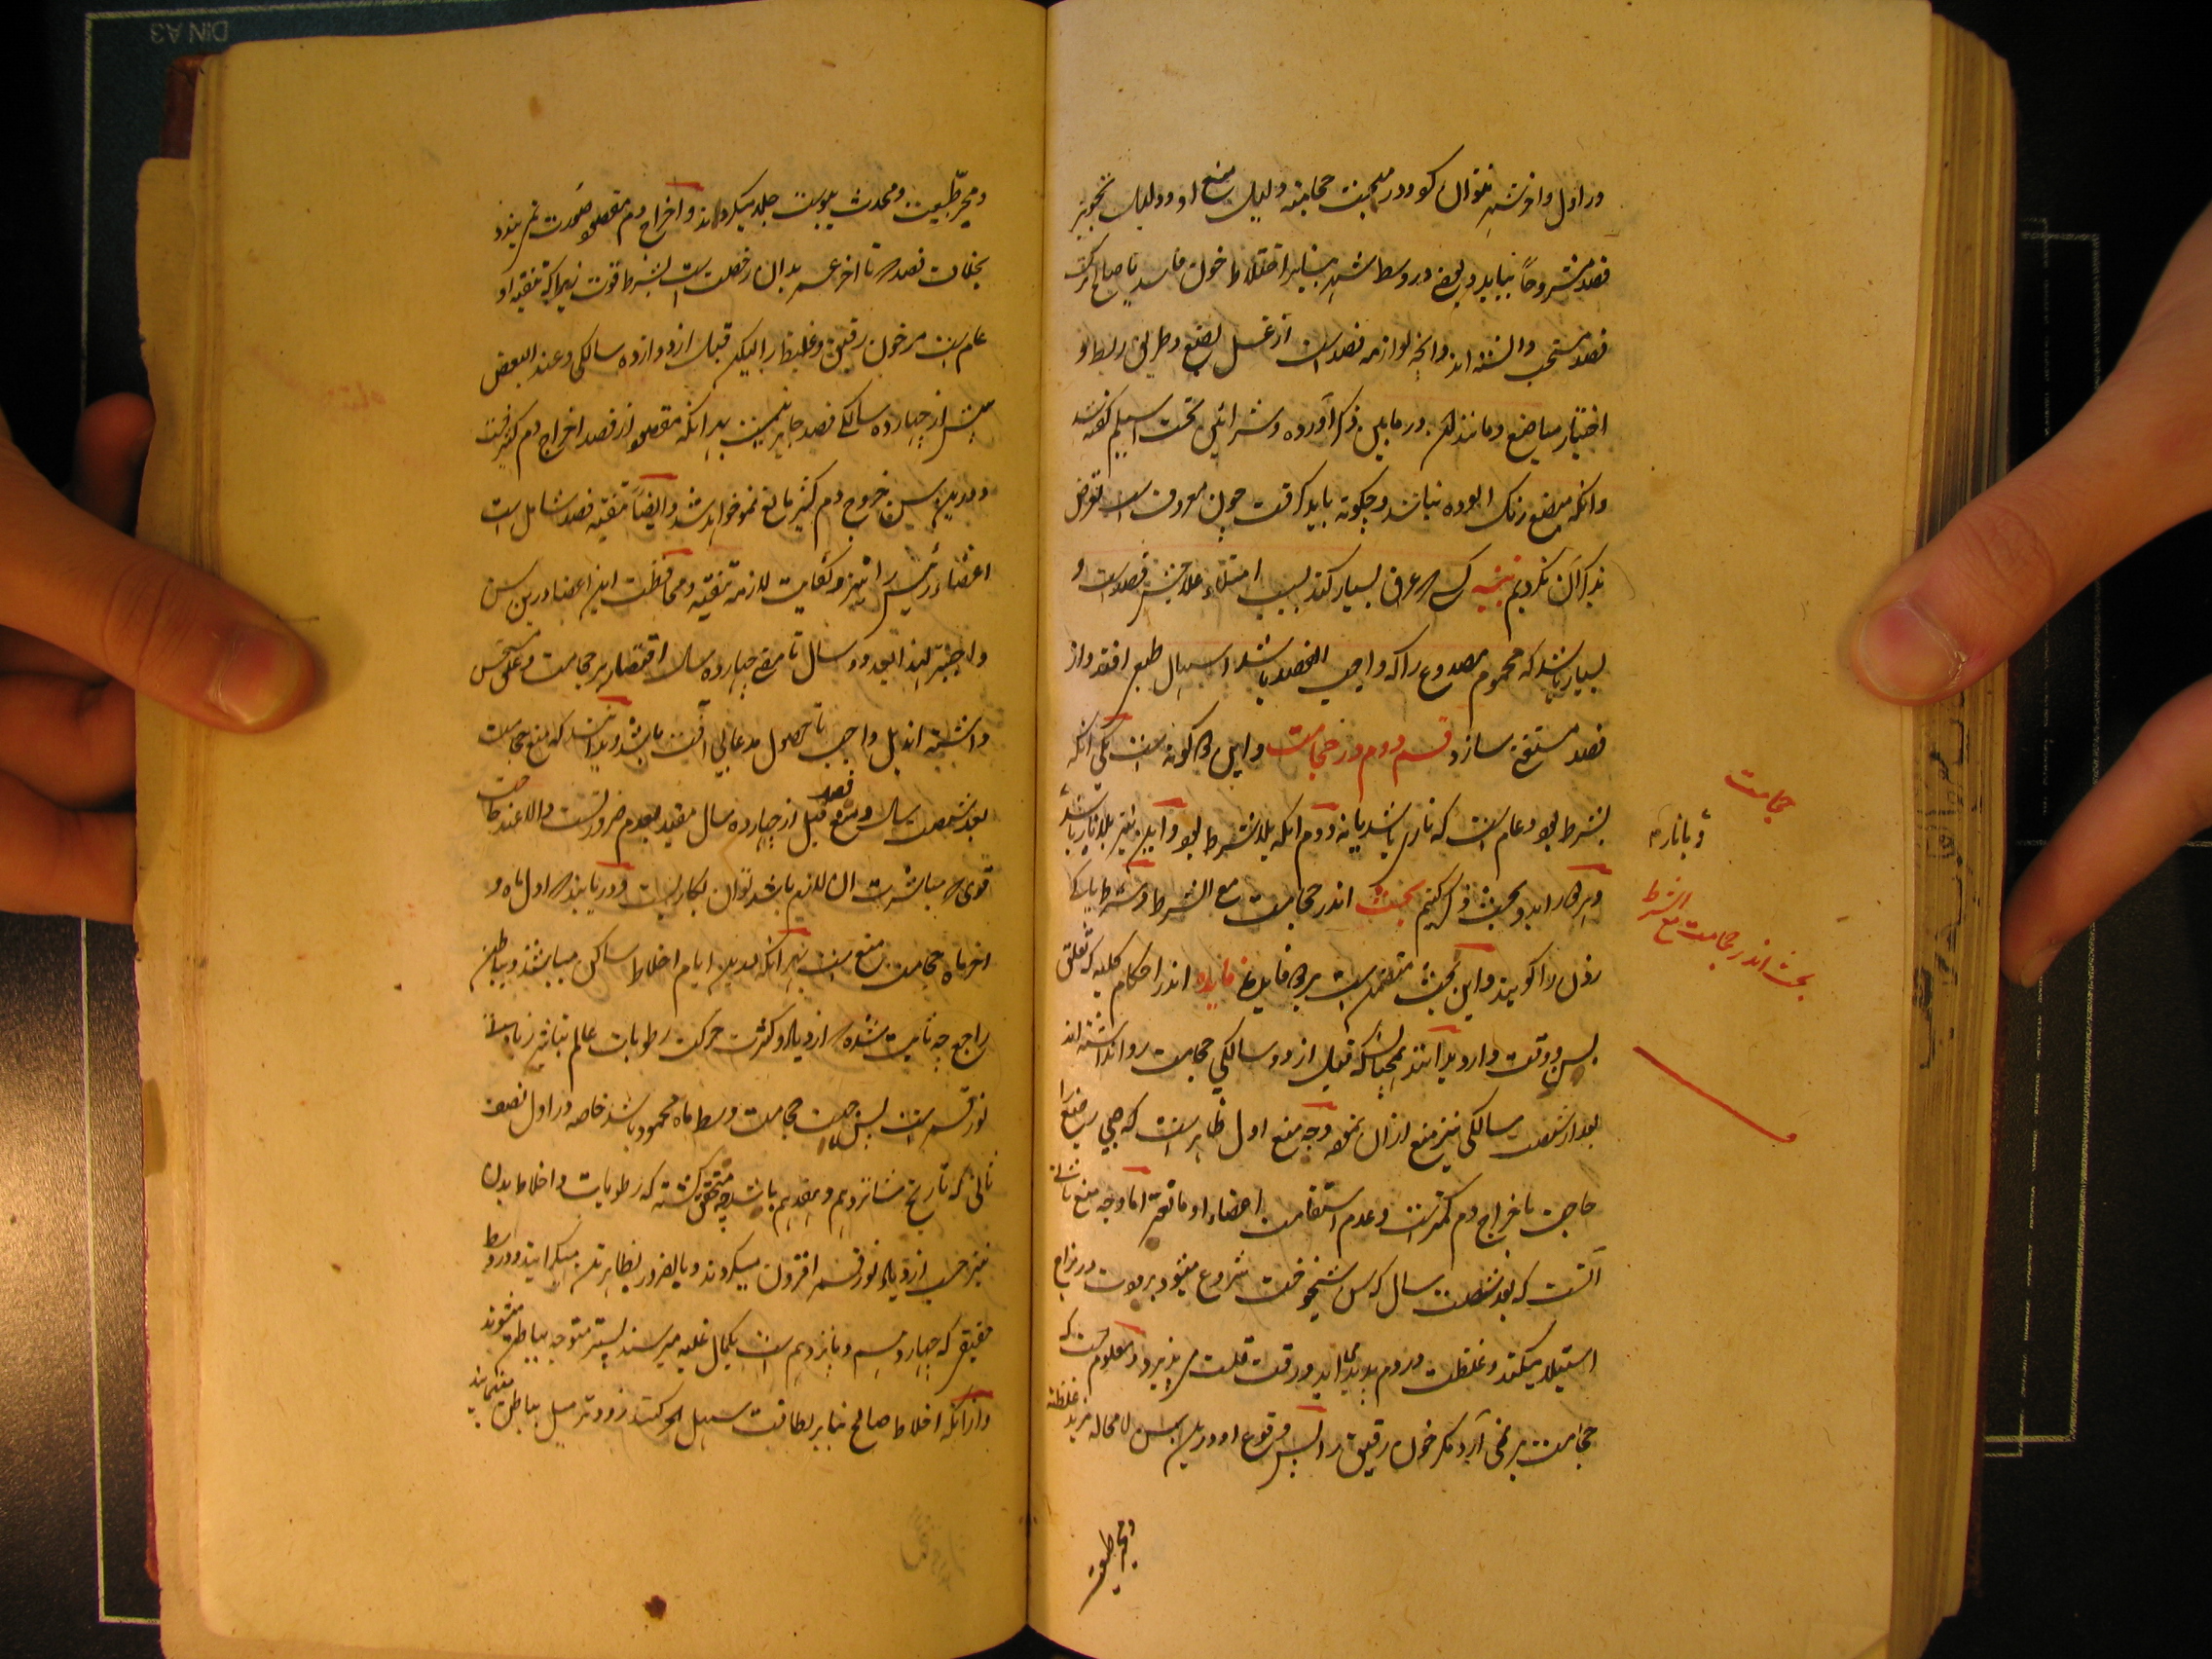 در اول و آخر شهر نتوان کرد و در مبحث حجامت دلیل منع او و دلیل تجویز
فصد مشروحاً بیاید و بعضی در وسط شهر بنابر اختلاط خون فاسد با صالح ترک
فصد مستحب دانسته اند و آنچه لوازمه فصد است از غسل بضع و طریق ربط و
اختیار مباضع و مانند آن در مابین ذکر آورده و شرائین تحت اسیلم گفته شد
و آنکه مبضع زنگ آلوده نباشد و چگونه باید گرفت چون معروف است تعرض
بذکر آن نکردیم تنبیه کسی که عرق بسیار کند بسبب امتلاء علاجش فصد است و
بسیار باشد که محموم مصدوع را که واجب الفصد باشد اسهال طبع افتد و از
فصد مستغنی سازد قسم دوم در حجامت و این بر دو گونه است یکی آنکه
بشرط بود و عام است که ناری باشد یا نه دوم آنکه بلا شرط بود و این نیز بلا نار باشد
و بانار
و هر دو را بدو بحث ذکر کنیم بحث اندر حجامت مع الشرط و شرط پاکی
زدن را گویند و این بحث متضمن است بر دو فایده فایده اندر احکام کلیه که تعلق
بسن و وقت دارد بدانند همچنانکه قبل از دو سالگی حجامت روا نداشته اند
بعد از شصت سالگی نیز منع از آن نموده وجه منع اول ظاهر است که صبی رضیع را
حاجت باخراج دم کمتر است و عدم استقامت اعضاء او مانعتر اما وجه منع ثانی
آنست که بعد شصت سال که سن شیخوخت شروع میشود برودت در مزاج
استیلا میکند و غلظت در دم پدید می آید و رقت قلت می پذیرد و معلوم است که
حجامت بر نمی آرد مگر خون رقیق را پس وقوع او در این سن لامحاله مزید غلظت
و محیر طبیعت
حجامت
بحث اندر حجامت مع الشرط
و محیر طبیعت و محدث یبوست جلد میگرداند و اخراج دم مقصود صورت نمی بندد
بخلاف فصد که تا آخر عمر بدان رخصت است بشرط قوت زیراکه تنقیه او
عام است مر خون رقیق و غلیظ را لیکن قبل از دوازده سالگی و عند البعض
پیش از چهارده سالگی فصد جایز نیست بهر آنکه مقصود از فصد اخراج دم کثیر است
و درین سن خروج دم کثیر مانع نمو خواهد شد و ایضاً تنقیه فصد شامل است
اعضاء رئیس را نیز و نکایت لازمه تنقیه و محافظت این اعضا درین سن
واجبتر لهذا بعد دو سال تا چهارده سال اقتصار بر حجامت مستحسن
داشته اند بل واجب تا حصول مدعا بی آفت باشد و بدانند که منع حجامت
بعد شصت سال و منع فصد قبل از چهارده سال مقید بعدم ضرورتست و الا عند حاجت
قوی که مباشرت آن لازم باشد توان بکار بست و دریابند که اول ماه و
آخر ماه حجامت منع است بهر آنکه بدین ایام اخلاط ساکن میباشند و بباطن
راجع چه ثابت شده که ازدیاد و کثرت حرکت رطوبات عالم بتاثیر زیادتی
نور قمر است پس حجامت وسط ماه محمود باشد خاصه در اول نصف
ثانی که تاریخ شانزدهم و هفدهم باشد چه متحقق گشته که رطوبات و اخلاط بدن
نیز حسب ازدیاد نور قمر افزون میگردند و بالضرور بظاهر بدن میگرایند و در وسط
حقیقی که چهاردهم و پانزدهم است بکمال غلبه میرسند پستر متوجه بباطن میشوند
و از آنکه اخلاط صالح بنابر لطافت سهل الحرکت زودتر میل بباطن مینمایند